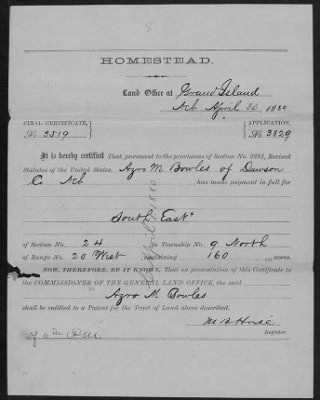 HOMESTEAD.
Land Office at Grand Island
Neb April 30 1880
FINAL CERTIFICATE,
No. 2519
APPLICATION,
No. 3829
It is hereby certified That, pursuant to the provisions of Section No. 2291, Revised
Statutes of the United States, Azro M Bowles of Dawson
Co Neb has made payment in full for
South East
of Section No. 24 Township No. 9 North
of Range No. 20 West containing 160 acres.
NOW, THEREFORE, BE IT KNOWN, That on presentation of this Certificate to the
COMMISSIONER OF THE GENERAL LAND OFFICE, the said
Azro M Bowles
shall be entitled to a Patent for the Tract of Land above described.
M B Hoxie
Register.
of 6th PM